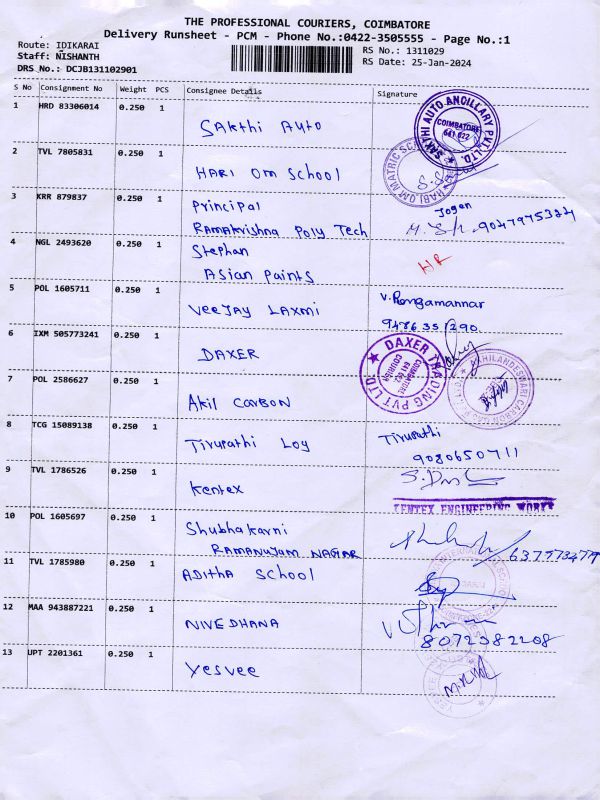 THE PROFESSIONAL COURIERS, COIMBATORE
Delivery Runsheet - PCM - Phone No.:0422-3505555 - Page No.:1
Route: IDIKARAI
RS No.: 1311029
Staff: NISHANTH
RS Date: 25-Jan-2024
DRS No.: DCJB131102901
S No Consignment No Weight PCS Consignee Details Signature
1 HRD 83306014 0.250 1
Sakthi Auto
SAKTHI AUTO ANCILLARY PVT. LTD.
COIMBATORE
641 022
2 TVL 7805831 0.250 1
HARI OM School
3 KRR 879837 0.250 1 Principal
Ramakrishna Poly Tech
4 NGL 2493620 0.250 1 Stephan
Asian Paints
HR
5 POL 1605711 0.250 1
VeeJAY LAXMI
V. Rongamannar
6 IXM 505773241 0.250 1
DAXER
DAXER TRADING PVT LTD
COIMBATORE
641 062
COURIER
7 POL 2586627 0.250 1
Akil CARBON
8 TCG 15089138 0.250 1
Tirupathi Loy
Tirupathi
9080650711
9 TVL 1786526 0.250 1
Kentex
KENTEX ENGINEERING WORKS
10 POL 1605697 0.250 1
Shubhakarni
RAMANUJAM NAGAR
11 TVL 1785980 0.250 1
ADitha School
12 MAA 943887221 0.250 1
NIVEDHANA
8072382208
13 UPT 2201361 0.250 1
Yesvee